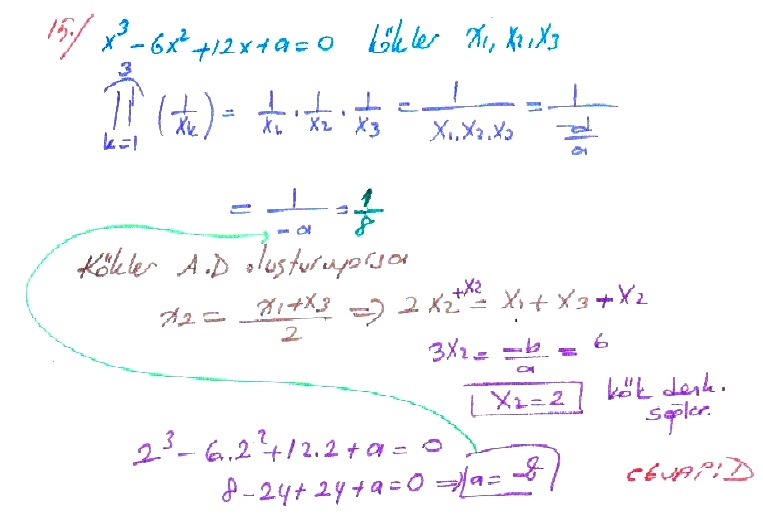 15./ x³ - 6x² + 12x + a = 0 kökler x₁, x₂, x₃
3
∏ (1/xₖ) = 1/x₁ · 1/x₂ · 1/x₃ = 1/(x₁.x₂.x₃) = 1/(-d/a)
k=1
= 1/-a = 1/8
Kökler A.D oluşturuyorsa
x₂ = (x₁+x₃)/2 ⇒ 2x₂ +x₂ = x₁ + x₃ + x₂
3x₂ = -b/a = 6
x₂ = 2 kök denk.
sağlar.
2³ - 6.2² + 12.2 + a = 0
8 - 24 + 24 + a = 0 ⇒ a = -8
CEVAP: D